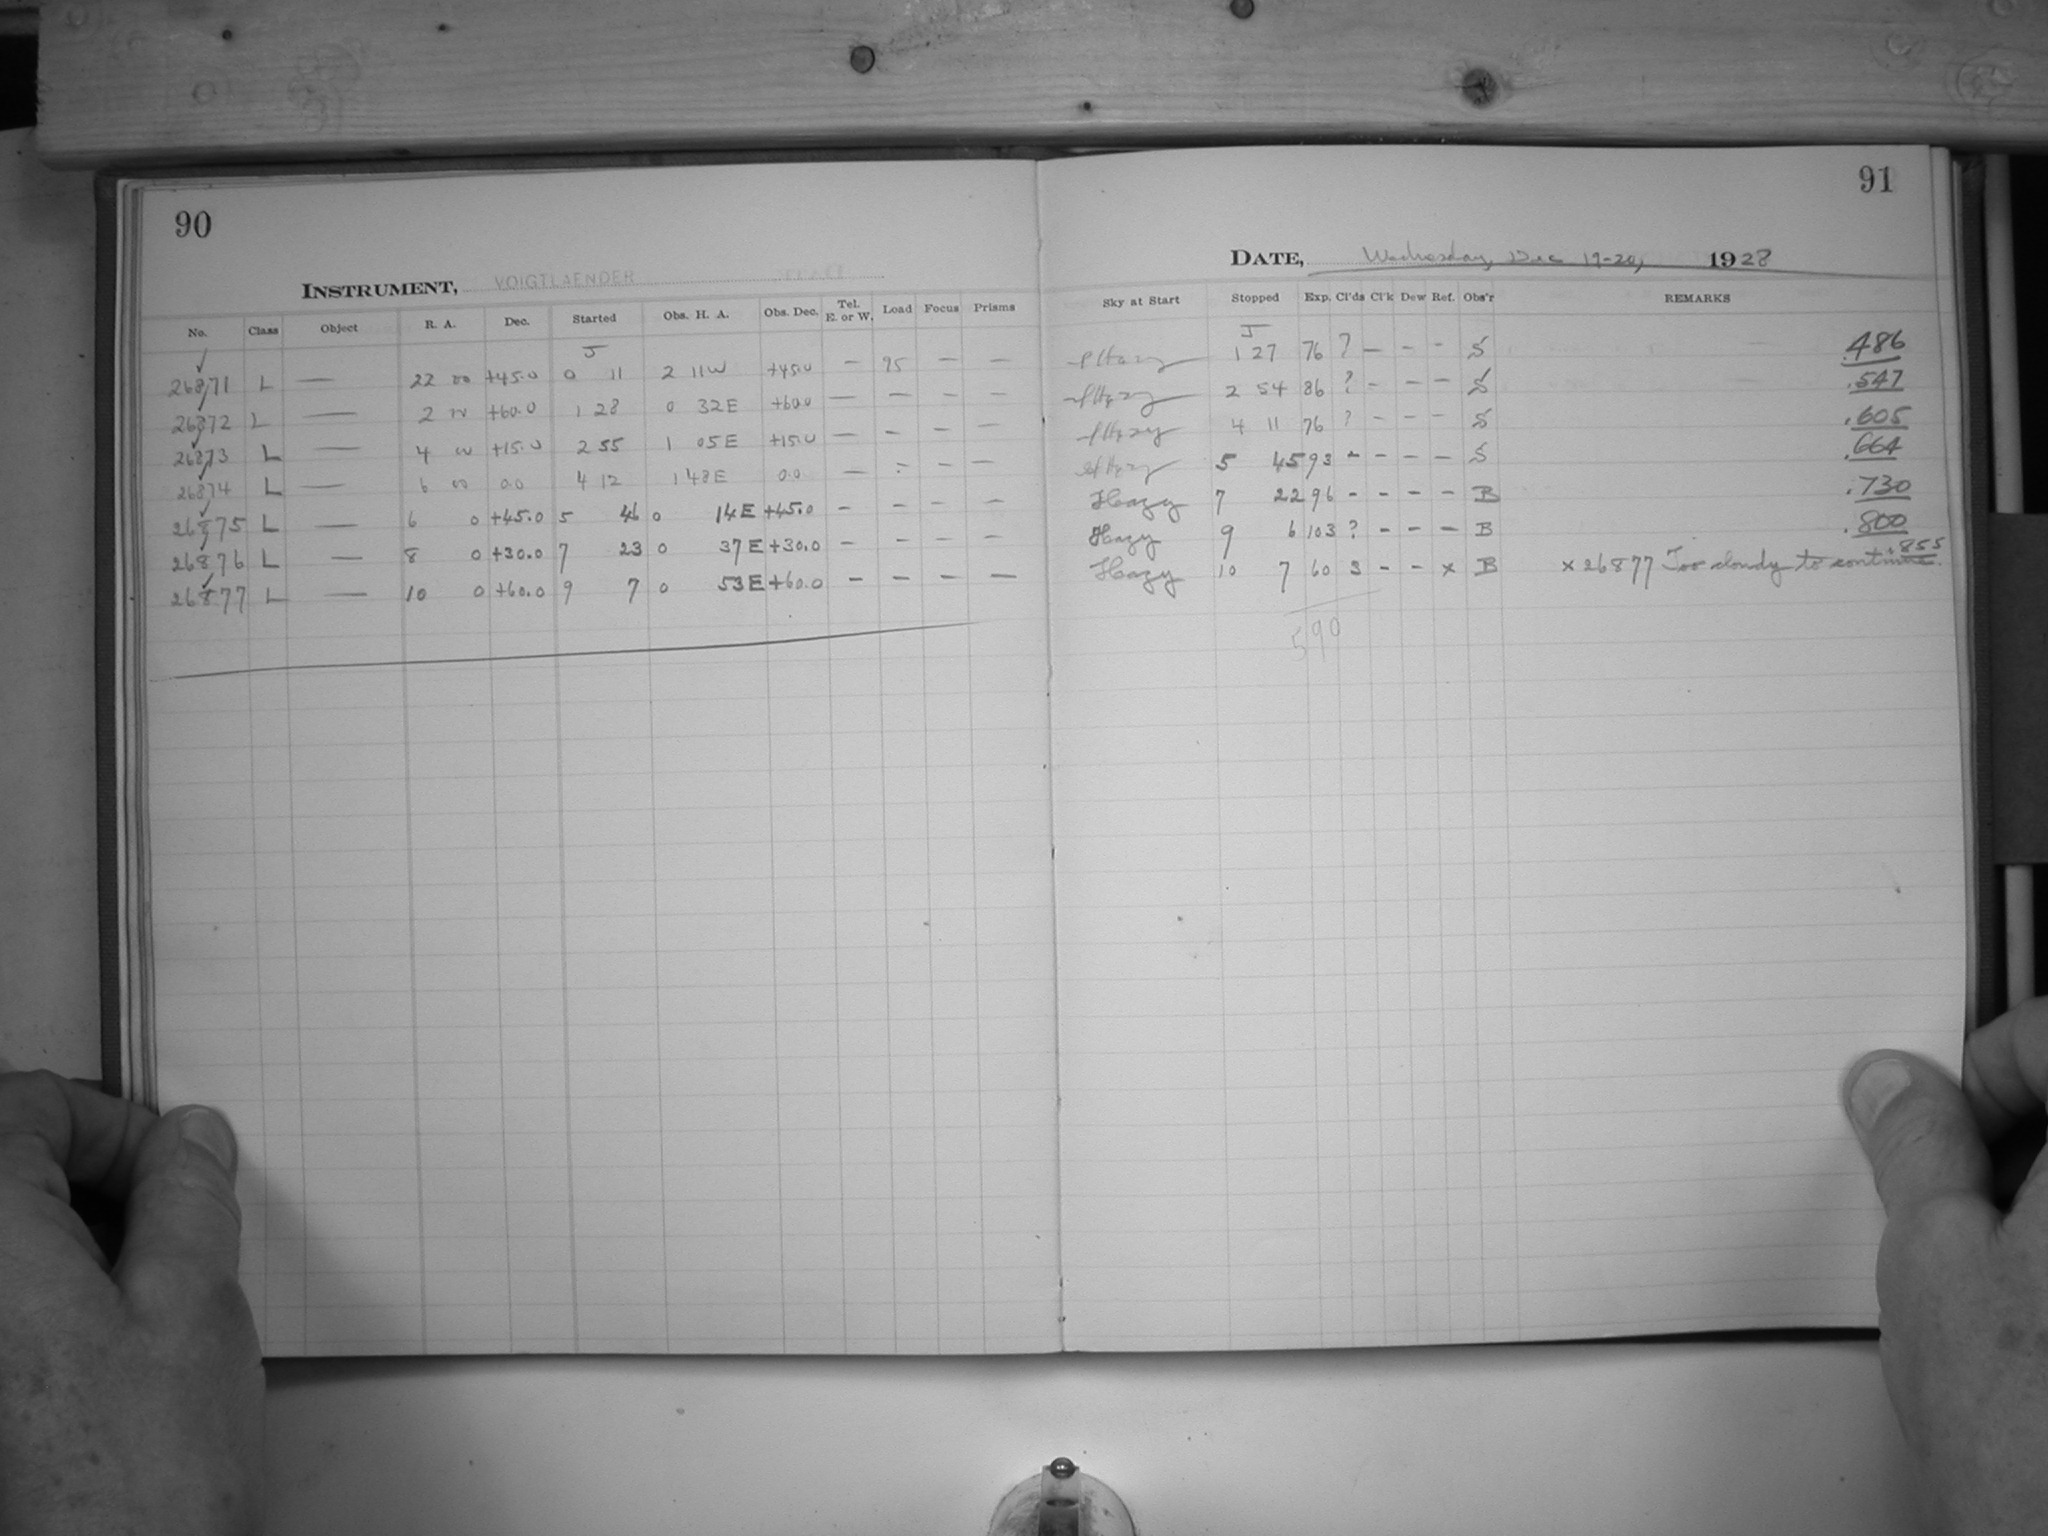 90
INSTRUMENT, VOIGTLAENDER
No. Class Object R. A. Dec. Started Obs. H. A. Obs. Dec. Tel. E. or W. Load Focus Prisms
J
26871 L — 22 00 +45.0 0 11 2 11W +45.0 — 95 — —
26872 L — 2 00 +60.0 1 28 0 32E +60.0 — — — —
26873 L — 4 00 +15.0 2 55 1 05E +15.0 — — — —
26874 L — 6 00 0.0 4 12 1 48E 0.0 — — — —
26875 L — 6 0 +45.0 5 46 0 14E +45.0 — — — —
26876 L — 8 0 +30.0 7 23 0 37E +30.0 — — — —
26877 L — 10 0 +60.0 9 7 0 53E +60.0 — — — —
91
DATE, Wednesday, Dec 19-20, 1928
Sky at Start Stopped Exp. Cl'ds Cl'k Dew Ref. Obs'r REMARKS
J
Hazy 1 27 76 ? — — — S .486
Hazy 2 54 86 ? — — — S .547
Hazy 4 11 76 ? — — — S .605
Hazy 5 45 93 — — — — S .664
Hazy 7 22 96 — — — — B .730
Hazy 9 6 103 ? — — — B .800
Hazy 10 7 60 3 — — x B x 26877 Too cloudy to continue. .855
590